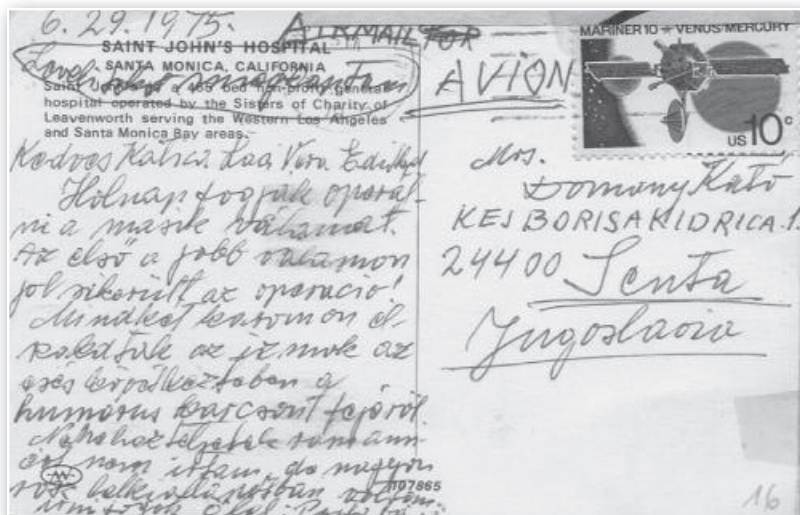 6.29.1975.
AIRMAIL FOR
AVION
SAINT JOHN'S HOSPITAL
SANTA MONICA, CALIFORNIA
Saint John's is a 455 bed non-profit general
hospital operated by the Sisters of Charity of
Leavenworth serving the Western Los Angeles
and Santa Monica Bay areas.
Kedves Katica Laci Vera
Holnap fogják operál-
ni a masik vállamat.
Az első a jobb vállamon
jol sikerült az operacio!
Mindket karomon el-
szakadtak az izmok az
esés következtében a
humorus karcsont fejéről.
Ne haragudjatok
nem irtam, de nagyon
107865
MARINER 10 ★ VENUS/MERCURY
US 10c
Mrs.
Domony Kató
KEJ BORISA KIDRICA 1.
24400 Senta
Jugoslavia
16